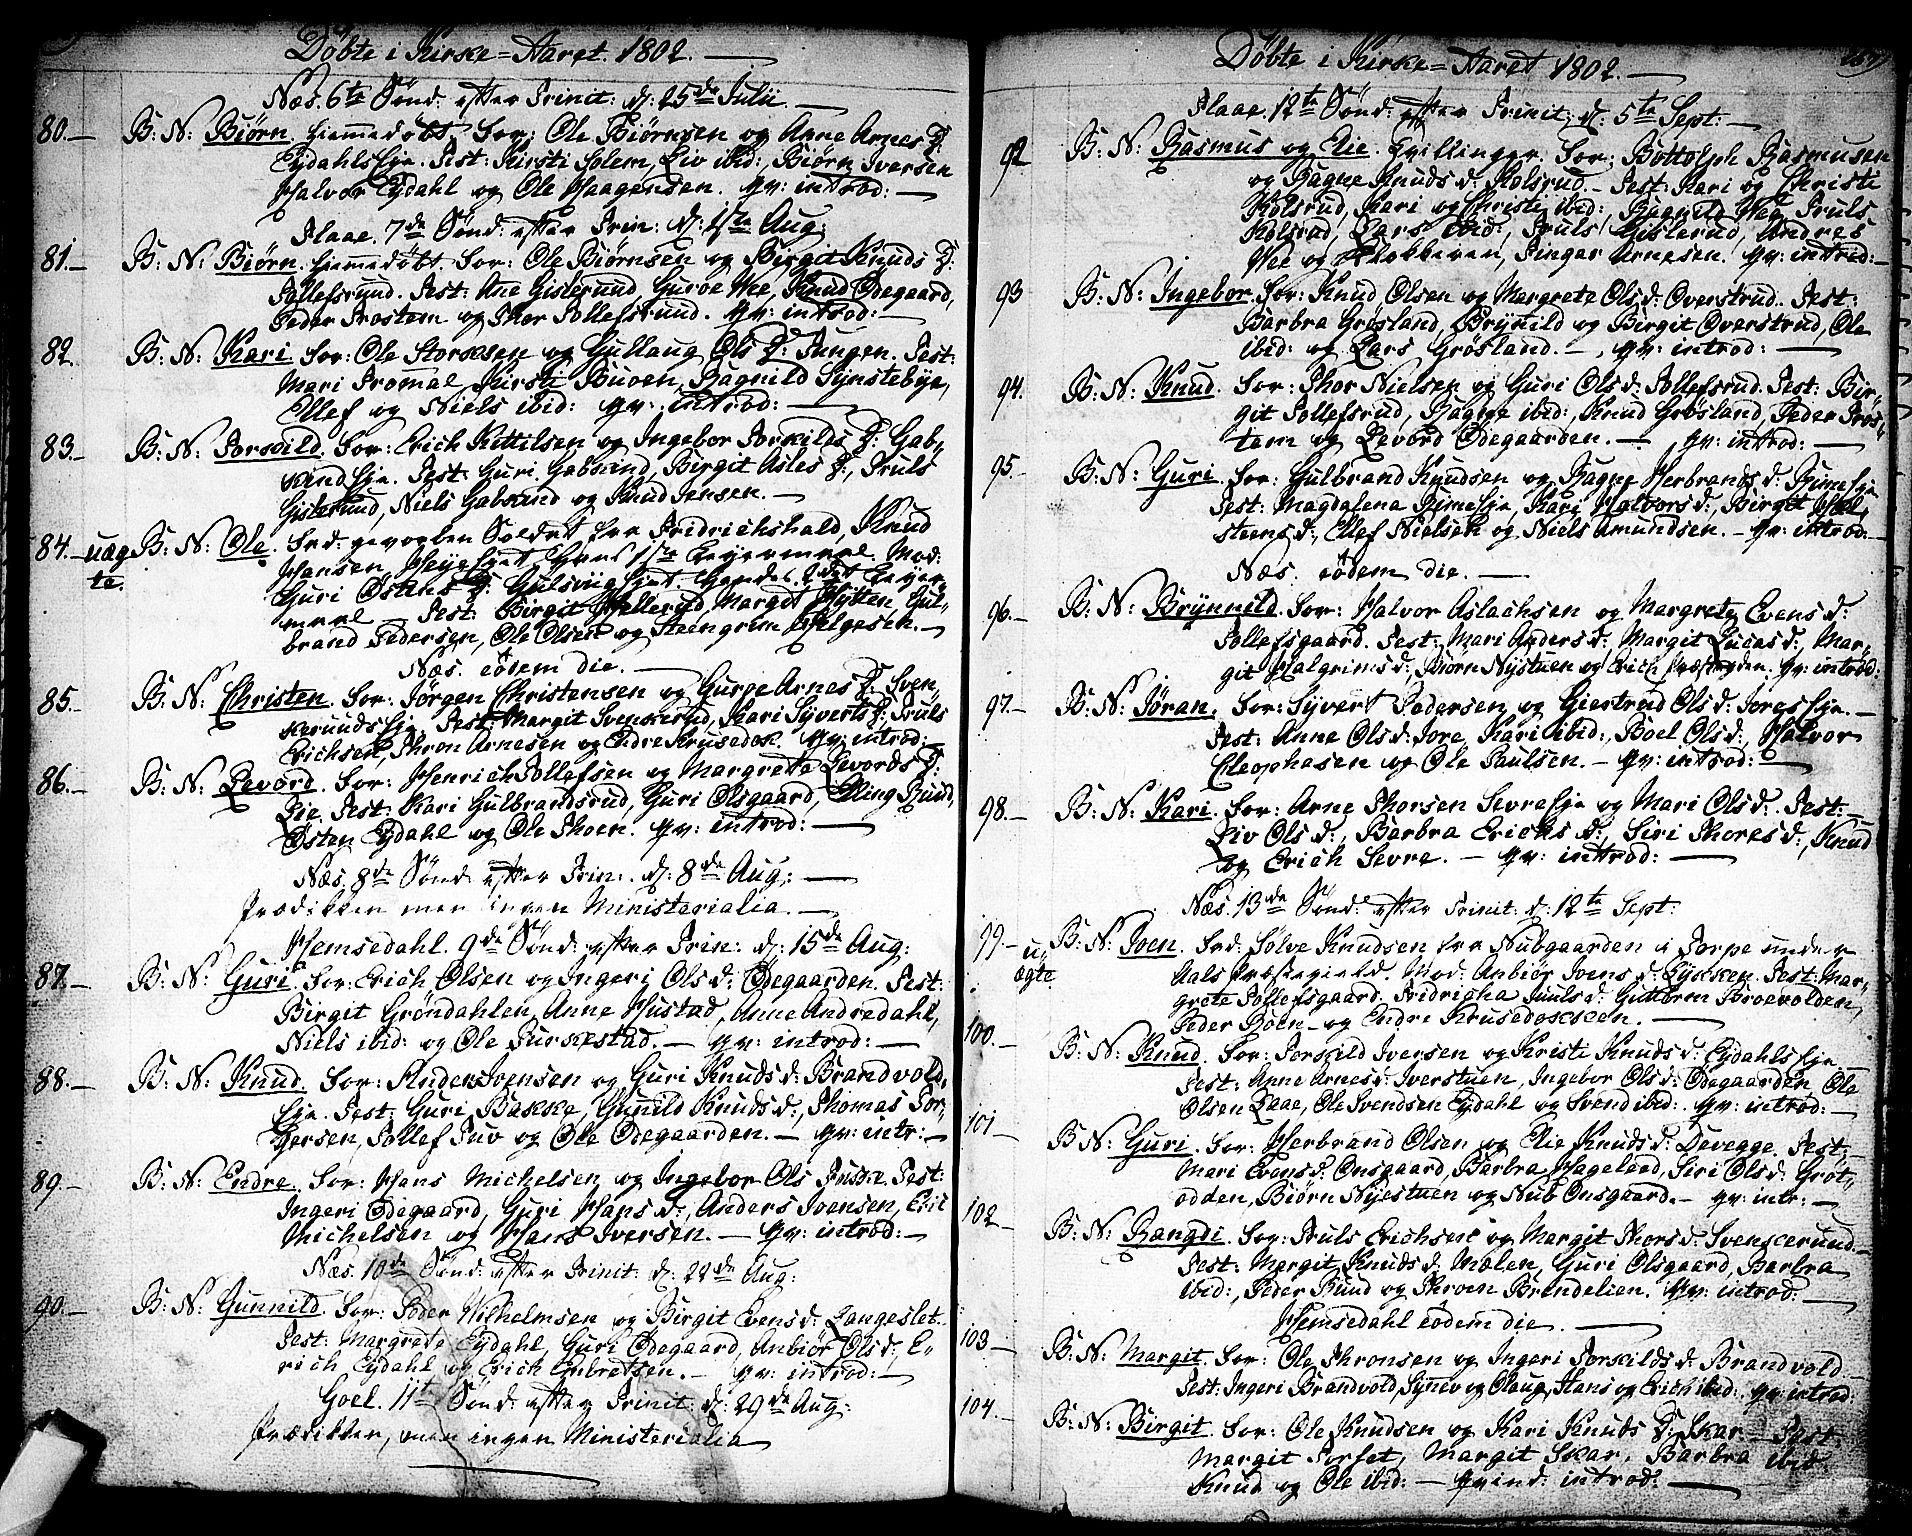 Döbte i Kirke=Aaret. 1802.
Næs. 6te Sönd: efter Trinit: d: 25de Julii.
80. B: N: Biörn. hjemmedöbt. For: Ole Biörnsen og Anne Arnes D:
Eydahls Eje. Test: Kirsti Solem, Liv ibid:, Biörn Iversen
Halvor Eydahl og Ole Haagensen. Qv: introd:
Flaae. 7de Sönd: efter Trin: d: 1ste Aug:
81. B: N: Biörn. hjemmedöbt. For: Ole Biörnsen og Birgit Knuds D:
Tollefsrund. Test: Ane Gislerund, Guroe Wee, Knud Ödegaard,
Peder Trostem og Thor Tollefsrund. Qv: introd:
82. B: N: Kari. For: Ole Storksen og Gullaug Ols D: Tungen. Test:
Mari Tromal, Kirsti Buoen, Ragnild Synstebye,
Ellef og Niels ibid: Qv: introd:
83. B: N: Torkild. For: Erich Kittilsen og Ingebor Torkilds D: Gab-
kind Eje. Test: Guri Gabkind, Birgit Asles D:, Truls
Gislerund, Niels Gabkind og Knud Jensen.
84. uæg B: N: Ole. Fad: gevorben Soldat fra Fridrichshald, Knud
te.
Hansen, Høye Ejet. Hans 1ste Lejermaal. Mod:
Guri Östens D: Gulsvig Ejet. Hendes 2det Lejer-
maal. Test: Birgit Hellerud, Margit Hytten, Gul-
brand Pedersen, Ole Olsen og Steengrim Helgesen.
Næs. eodem die.
85. B: N: Christen. For: Jörgen Christensen og Gurge Arnes D: Sven-
kerunds Eje. Test: Margit Svenkerud, Kari Syverts D: Truls
Erichsen, Thron Arnesen og Endre Krusedok. Qv: introd:
86. B: N: Levord. For: Henrich Tollefsen og Margrete Levords D:
Lie. Test: Kari Gulbrandsrud, Guri Olsgaard, Elling Rund,
Östen Eydahl og Ole Thoen. Qv: introd:
Næs. 8de Sönd: efter Trin: d: 8de Aug:
Prædikken men ingen Ministerialia.
Hemsedahl. 9de Sönd: efter Trin: d: 15de Aug:
87. B: N: Guri. For: Erich Olsen og Ingeri Ols d: Ödegaarden. Test:
Birgit Gröndahlen, Anne Hustad, Anne Andredahl,
Niels ibid: og Ole Turkestad. Qv: introd:
88. B: N: Knud. For: Anders Ivensen og Guri Knuds d: Brandvold
Eje. Test: Guri Bakke, Gunild Knuds d:, Thomas Tor-
gersen, Tollef Tuv og Ole Ödegaarden. Qv: intr:
89. B: N: Endre. For: Hans Michelsen og Ingebor Ols Inske. Test:
Ingeri Ödegaard, Guri Hans d:, Anders Ivensen, Eric
Michelsen og Hans Iversen. Qv: introd:
Næs. 10de Sönd: efter Trinit: d: 22de Aug:
90. B: N: Gunnild. For: Peder Wilhelmsen og Birgit Evens d: Langeslet.
Test: Margrete Eydahl, Guri Ödegaard, Anbiör Ols d:, E-
rich Eydahl og Erich Embretsen. Qv: introd:
Goel. 11te Sönd: efter Trinit: d: 29de Aug:
Prædikken, men ingen Ministerialia
Döbte i Kirke=Aaret 1802.
Flaae. 12te Sönd: efter Trinit: d: 5te Sept:
92 B: N: Rasmus og Elie. Tvillinger. For: Bottolph Rasmusen
og Ragne Knuds d: Kolsrud. Test: Kari og Christi
Kolsrud, Kari og Christi ibid:, Ragnild Wee, Truls
Kolsrud, Lars ibid:, Truls Gislerud, Andres
Wee og Klokkeren, Finger Arnesen. Qv: introd:
93 B: N: Ingebor. For: Knud Olsen og Margrete Ols d: Overstrud. Test:
Barbra Grösland, Brynild og Birgit Overstrud, Ole
ibid: og Lars Grösland. Qv: introd:
94. B: N: Knud. For: Thor Nielsen og Guri Ols d: Tollefsrud. Test: Bir-
git Tollefsrud, Ragne ibid:, Knud Grösland, Peder Tros-
tem og Levord Ödegaarden. Qv: introd:
95. B: N: Guri. For: Gulbrand Knudsen og Ragne Herbrands d: Rime Eje
Test: Magdalena Rime Eje, Kari Halvors d:, Birgit Hal-
steens d:, Ellef Nielsen og Niels Amundsen. Qv: introd:
Næs. eodem die.
96. B: N: Brynnild. For: Halvor Aslachsen og Margrete Evens d:
Tollefsgaard. Test: Mari Anders d:, Margit Lucas d:, Mar-
git Halgrims d:, Biörn Nystuen og Erich Qv: introd:
97. B: N: Jöran. For: Syvert Pedersen og Giertrud Ols d: Jores Eje.
Test: Anne Ols d: Jore, Kari ibid:, Boel Ols d:, Halvor
Cleophasen og Ole Paulsen. Qv: introd:
98. B: N: Kari. For: Arne Thorsen Sevre Eje og Mari Ols d: Test:
Liv Ols d:, Barbra Erichs d:, Siri Thores d:, Knud
og Erich Sevre. Qv: introd:
Næs. 13de Sönd: efter Trinit: d: 12te Sept:
99. u- B: N: Joen. Fad: Sölve Knudsen fra Nubgaarden i Torpe under
ægte Aals Præstegield. Mod: Anbiör Joens d: Lykken. Test: Mar-
grete Tollefsgaard, Fridricha Juuls d:, Guttorm Broevolden,
Peder Roen og Endre Krusedokken.
100. B: N: Knud. For: Torkild Iversen og Kristi Knuds d: Eydahls Eje
Test: Anne Arnes d: Iverstuen, Ingebor Ols d: Ödegaarden, Ole
Olsen Laae, Ole Svendsen Eydahl og Svend ibid: Qv: introd:
101 B: N: Guri. For: Herbrand Olsen og Elie Knuds d: Devegge. Test:
Mari Evens d: Onsgaard, Barbra Hageleed, Siri Ols d: Gröt-
odden, Biörn Nyestuen og Nub Onsgaard. Qv: intr:
102 B: N: Rangdi. For: Truls Erichsen og Margit Thors d: Svenkerund.
Test: Margit Knuds d: Mælen, Guri Olsgaard, Barbra
ibid:, Peder Rund og Thron Brendelien. Qv: introd:
Hemsedahl eodem die.
103 B: N: Margit. For: Ole Thronsen og Ingeri Torkilds d: Brandvold
Test: Ingeri Brandvold, Synev og Olaug, Hans og Erich ibid: Qv: introd:
104. B: N: Birgit. For: Ole Knudsen og Kari Knuds D: Skar. Test:
Margit Torset, Margit Skar, Barbra ibid:
Knud og Ole ibid: Qvind: introd: